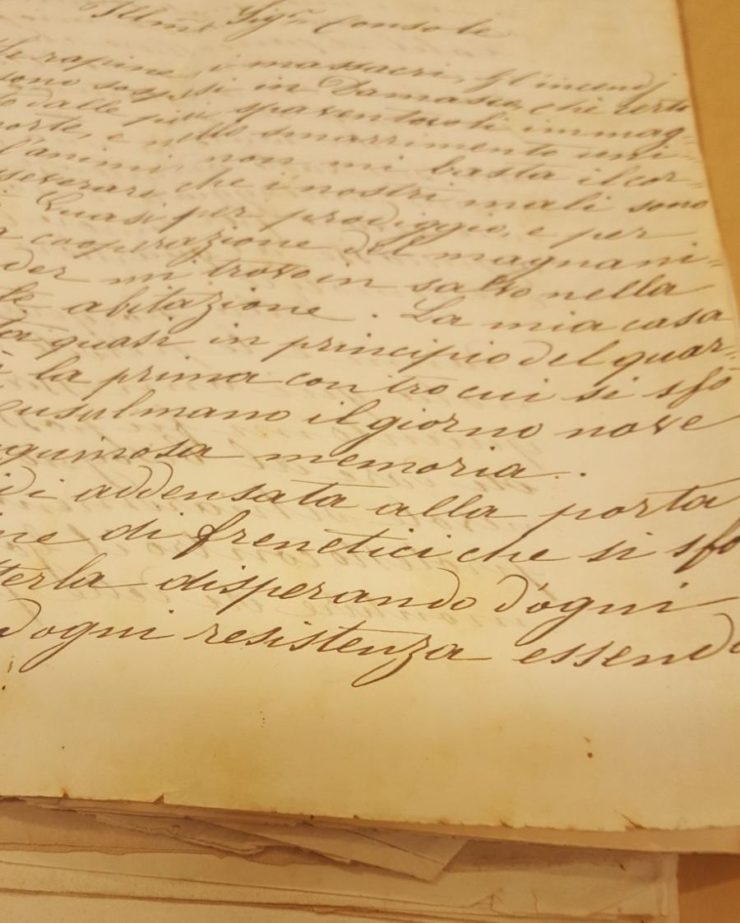 Illmo Sigr Console
rapine, i massacri, gl'incendj
sono sospesi in Damasco, che certo
dalle più spaventevoli immag-
morte, e nello smarrimento uni-
d'animi, non mi basta il cor-
che i nostri mali sono
Quasi per prodiggio, e per
cooperazione del magnani-
der mi trovo in salvo nella
le abitazione. La mia casa
quasi in principio del quar-
la prima contro cui si sfo
usulmano il giorno nove
guinosa memoria.
di addensata alla porta
ne di frenetici che si sfo
terla disperando d'ogni
d'ogni resistenza essend